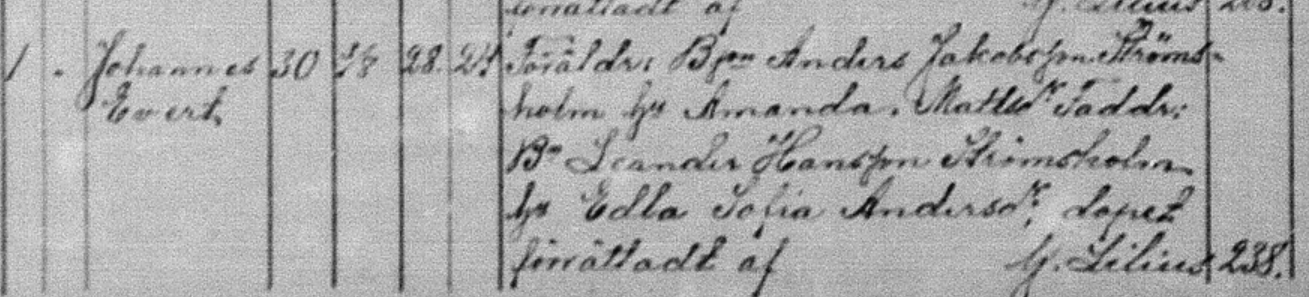 förrättadt af G. Lilius 203.
1 Johannes 30 1/8 28. 24 Föräldr: Bson Anders Jakobsson Ströms-
Evert, holm hu Amanda. Mattsdr Faddr:
Bn Leander Hansson Strömsholm
hu Edla Sofia Andersdr, dopet
förrättadt af G. Lilius 238.